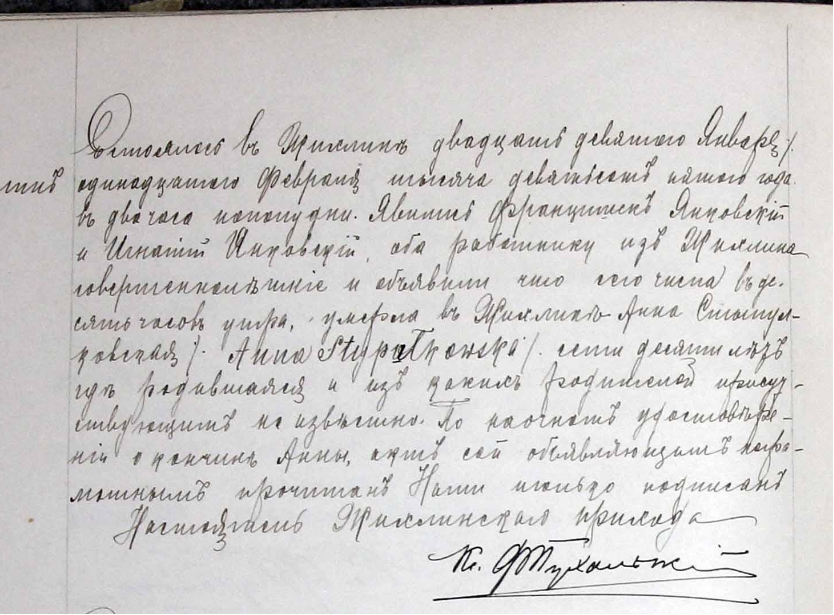 Состоялось въ Жихлинѣ двадцать девятого Января /.
одинадцатого Февраля тысяча девятьсотъ пятого года.
въ два часа пополудни. Явились Францишекъ Янковскій
и Игнатій Янковскій, оба работнику изъ Жихлина
совершеннолѣтніе и объявили что сего числа въ де-
сять часовъ утра, умерла въ Жихлинѣ Анна Стыпул-
ковская /. Anna Stypułkowska /. сети десяти лѣтъ
гдѣ родившаяся и изъ какихъ родителей присут-
ствующимъ не извѣстно. По наочномъ удостовѣре-
ніи о кончинѣ Анны, актъ сей объявляющимъ негра-
мотнымъ прочитанъ Нами только подписанъ
Настоятель Жихлинскаго прихода
Кс.